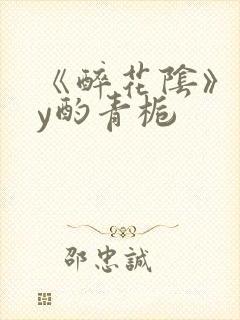 《醉花陰》
y酌青栀
邵忠誠